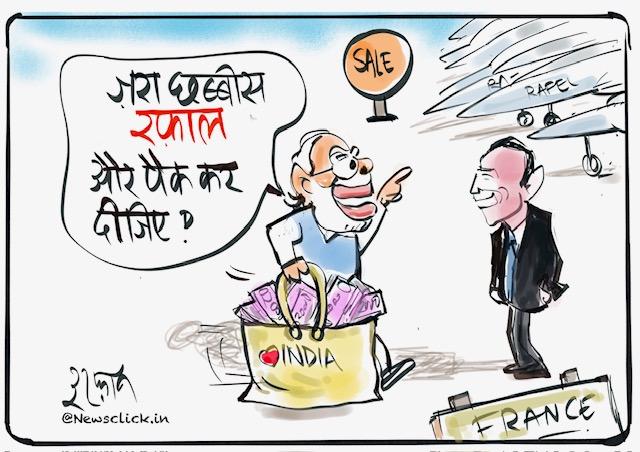 ज़रा छब्बीस
रफ़ाल
और पैक कर
दीजिए?
SALE
RA-
RAFEL
INDIA
इरफ़ान
@Newsclick.in
FRANCE